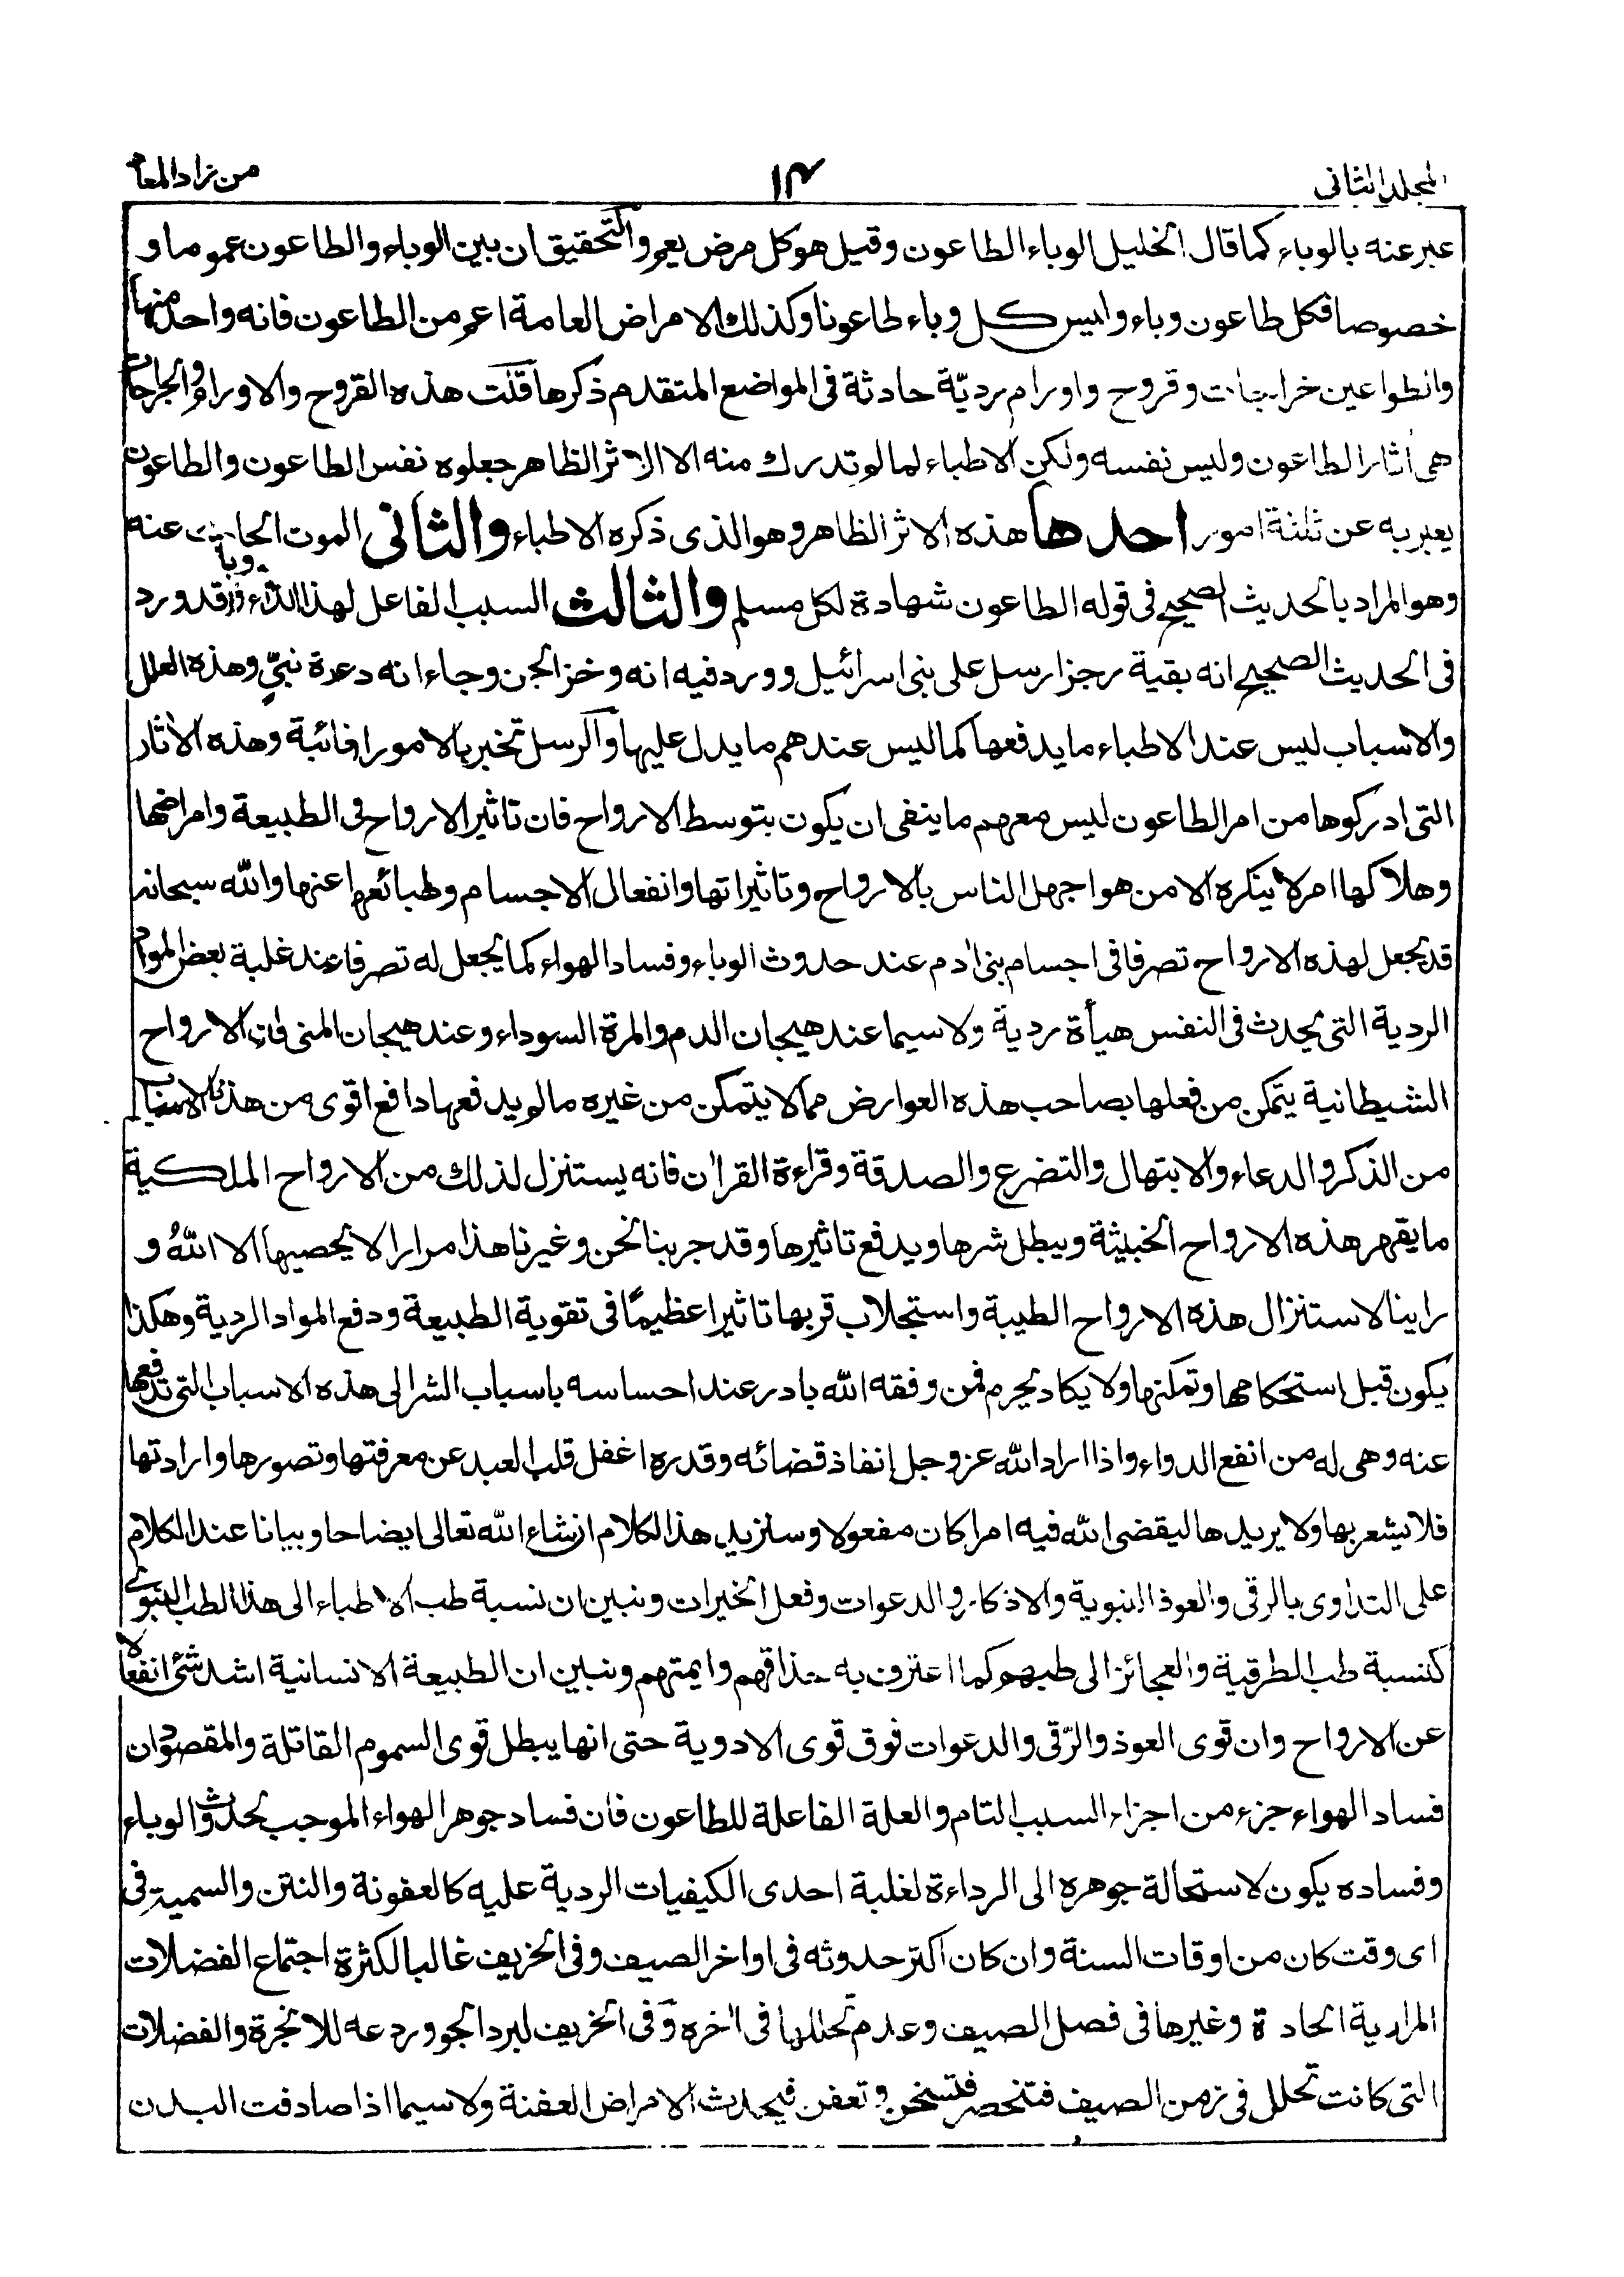 المجلد الثانى
١٣
من زاد المعاد
عبر عنه بالوباء كما قال الخليل الوباء الطاعون وقيل هو كل مرض يعم والتحقيق ان بين الوباء والطاعون عموما و
خصوصا فكل طاعون وباء وليس كل وباء طاعونا وكذلك الامراض العامة اعم من الطاعون فانه واحد منها
والطواعين خراجات وقروح واورام رديّة حادثة فى المواضع المتقدم ذكرها قلت هذه القروح والاورام والجراحات
هى اٰثار الطاعون وليس نفسه ولكن الاطباء لما لم تدرك منه الا الاثر الظاهر جعلوه نفس الطاعون والطاعون
يعبر به عن ثلثة امور احدها هذه الاثر الظاهر وهو الذى ذكره الاطباء والثانى الموت الحادث عنه
وهو المراد بالحديث الصحيح فى قوله الطاعون شهادة لكل مسلم والثالث السبب الفاعل لهذا الداء وقد ورد
فى الحديث الصحيح انه بقية رجز ارسل على بنى اسرائيل وورد فيه انه وخز الجن وجاء انه دعوة نبىٍّ وهذه العلل
والاسباب ليس عند الاطباء ما يدفعها كما ليس عندهم ما يدل عليها والرسل تخبر بالامور الغائبة وهذه الاٰثار
التى ادركوها من امر الطاعون ليس معهم ما ينفى ان يكون بتوسط الارواح فان تاثير الارواح فى الطبيعة وامراضها
وهلاكها امر لا ينكره الا من هو اجهل الناس بالارواح وتاثيراتها وانفعال الاجسام وطبائعها عنها والله سبحانه
قد يجعل لهذه الارواح تصرفا فى اجسام بنى اٰدم عند حدوث الوباء وفساد الهواء كما يجعل له تصرفا عند غلبة بعض المواد
الردية التى يحدث فى النفس هيأة ردية ولا سيما عند هيجان الدم والمرة السوداء وعند هيجان المنى فان الارواح
الشيطانية يتمكن من فعلها بصاحب هذه العوارض مما لا يتمكن من غيره ما لم يدفعها دافع اقوى من هذه الاسباب
من الذكر والدعاء والابتهال والتضرع والصدقة وقراءة القراٰن فانه يستنزل لذلك من الارواح الملكية
ما يقهر هذه الارواح الخبيثة ويبطل شرها ويدفع تاثيرها وقد جربنا نحن وغيرنا هذا مرارا لا يحصيها الا اللهُ و
راينا لاستنزال هذه الارواح الطيبة واستجلاب قربها تاثيرا عظيمًا فى تقوية الطبيعة ودفع المواد الردية وهكذا
يكون قبل استحكامها وتمكنها ولا يكاد يحرم فمن وفقه الله بادر عند احساسه باسباب الشر الى هذه الاسباب التى تدفعها
عنه وهى له من انفع الدواء واذا اراد الله عز وجل انفاذ قضائه وقدره اغفل قلب العبد عن معرفتها وتصورها وارادتها
فلا يشعر بها ولا يريدها ليقضى الله فيه امرا كان مفعولا وسنزيد هذا الكلام انشاء الله تعالى ايضاحا وبيانا عند الكلام
على التداوى بالرقى والعوذ النبوية والاذكار والدعوات وفعل الخيرات ونبين ان نسبة طب الاطباء الى هذا الطب النبوى
كنسبة طب الطرقية والعجائز الى طبهم كما اعترف به حذاقهم وايمتهم ونبين ان الطبيعة الانسانية اشد شئ انفعالا
عن الارواح وان قوى العوذ والرّقى والدعوات فوق قوى الادوية حتى انها يبطل قوى السموم القاتلة والمقصود ان
فساد الهواء جزء من اجزاء السبب التام والعلة الفاعلة للطاعون فان فساد جوهر الهواء الموجب لحدوث الوباء
وفساده يكون لاستحالة جوهره الى الرداءة لغلبة احدى الكيفيات الردية عليه كالعفونة والنتن والسمية فى
اى وقت كان من اوقات السنة وان كان اكثر حدوثه فى اواخر الصيف وفى الخريف غالبا لكثرة اجتماع الفضلات
المرارية الحادة وغيرها فى فصل الصيف وعدم تحللها فى اٰخره وفى الخريف لبرد الجو وردعه للابخرة والفضلات
التى كانت تحلل فى زمن الصيف فتنحصر فتسخن وتعفن فيحدث الامراض العفنة ولا سيما اذا صادفت البدن